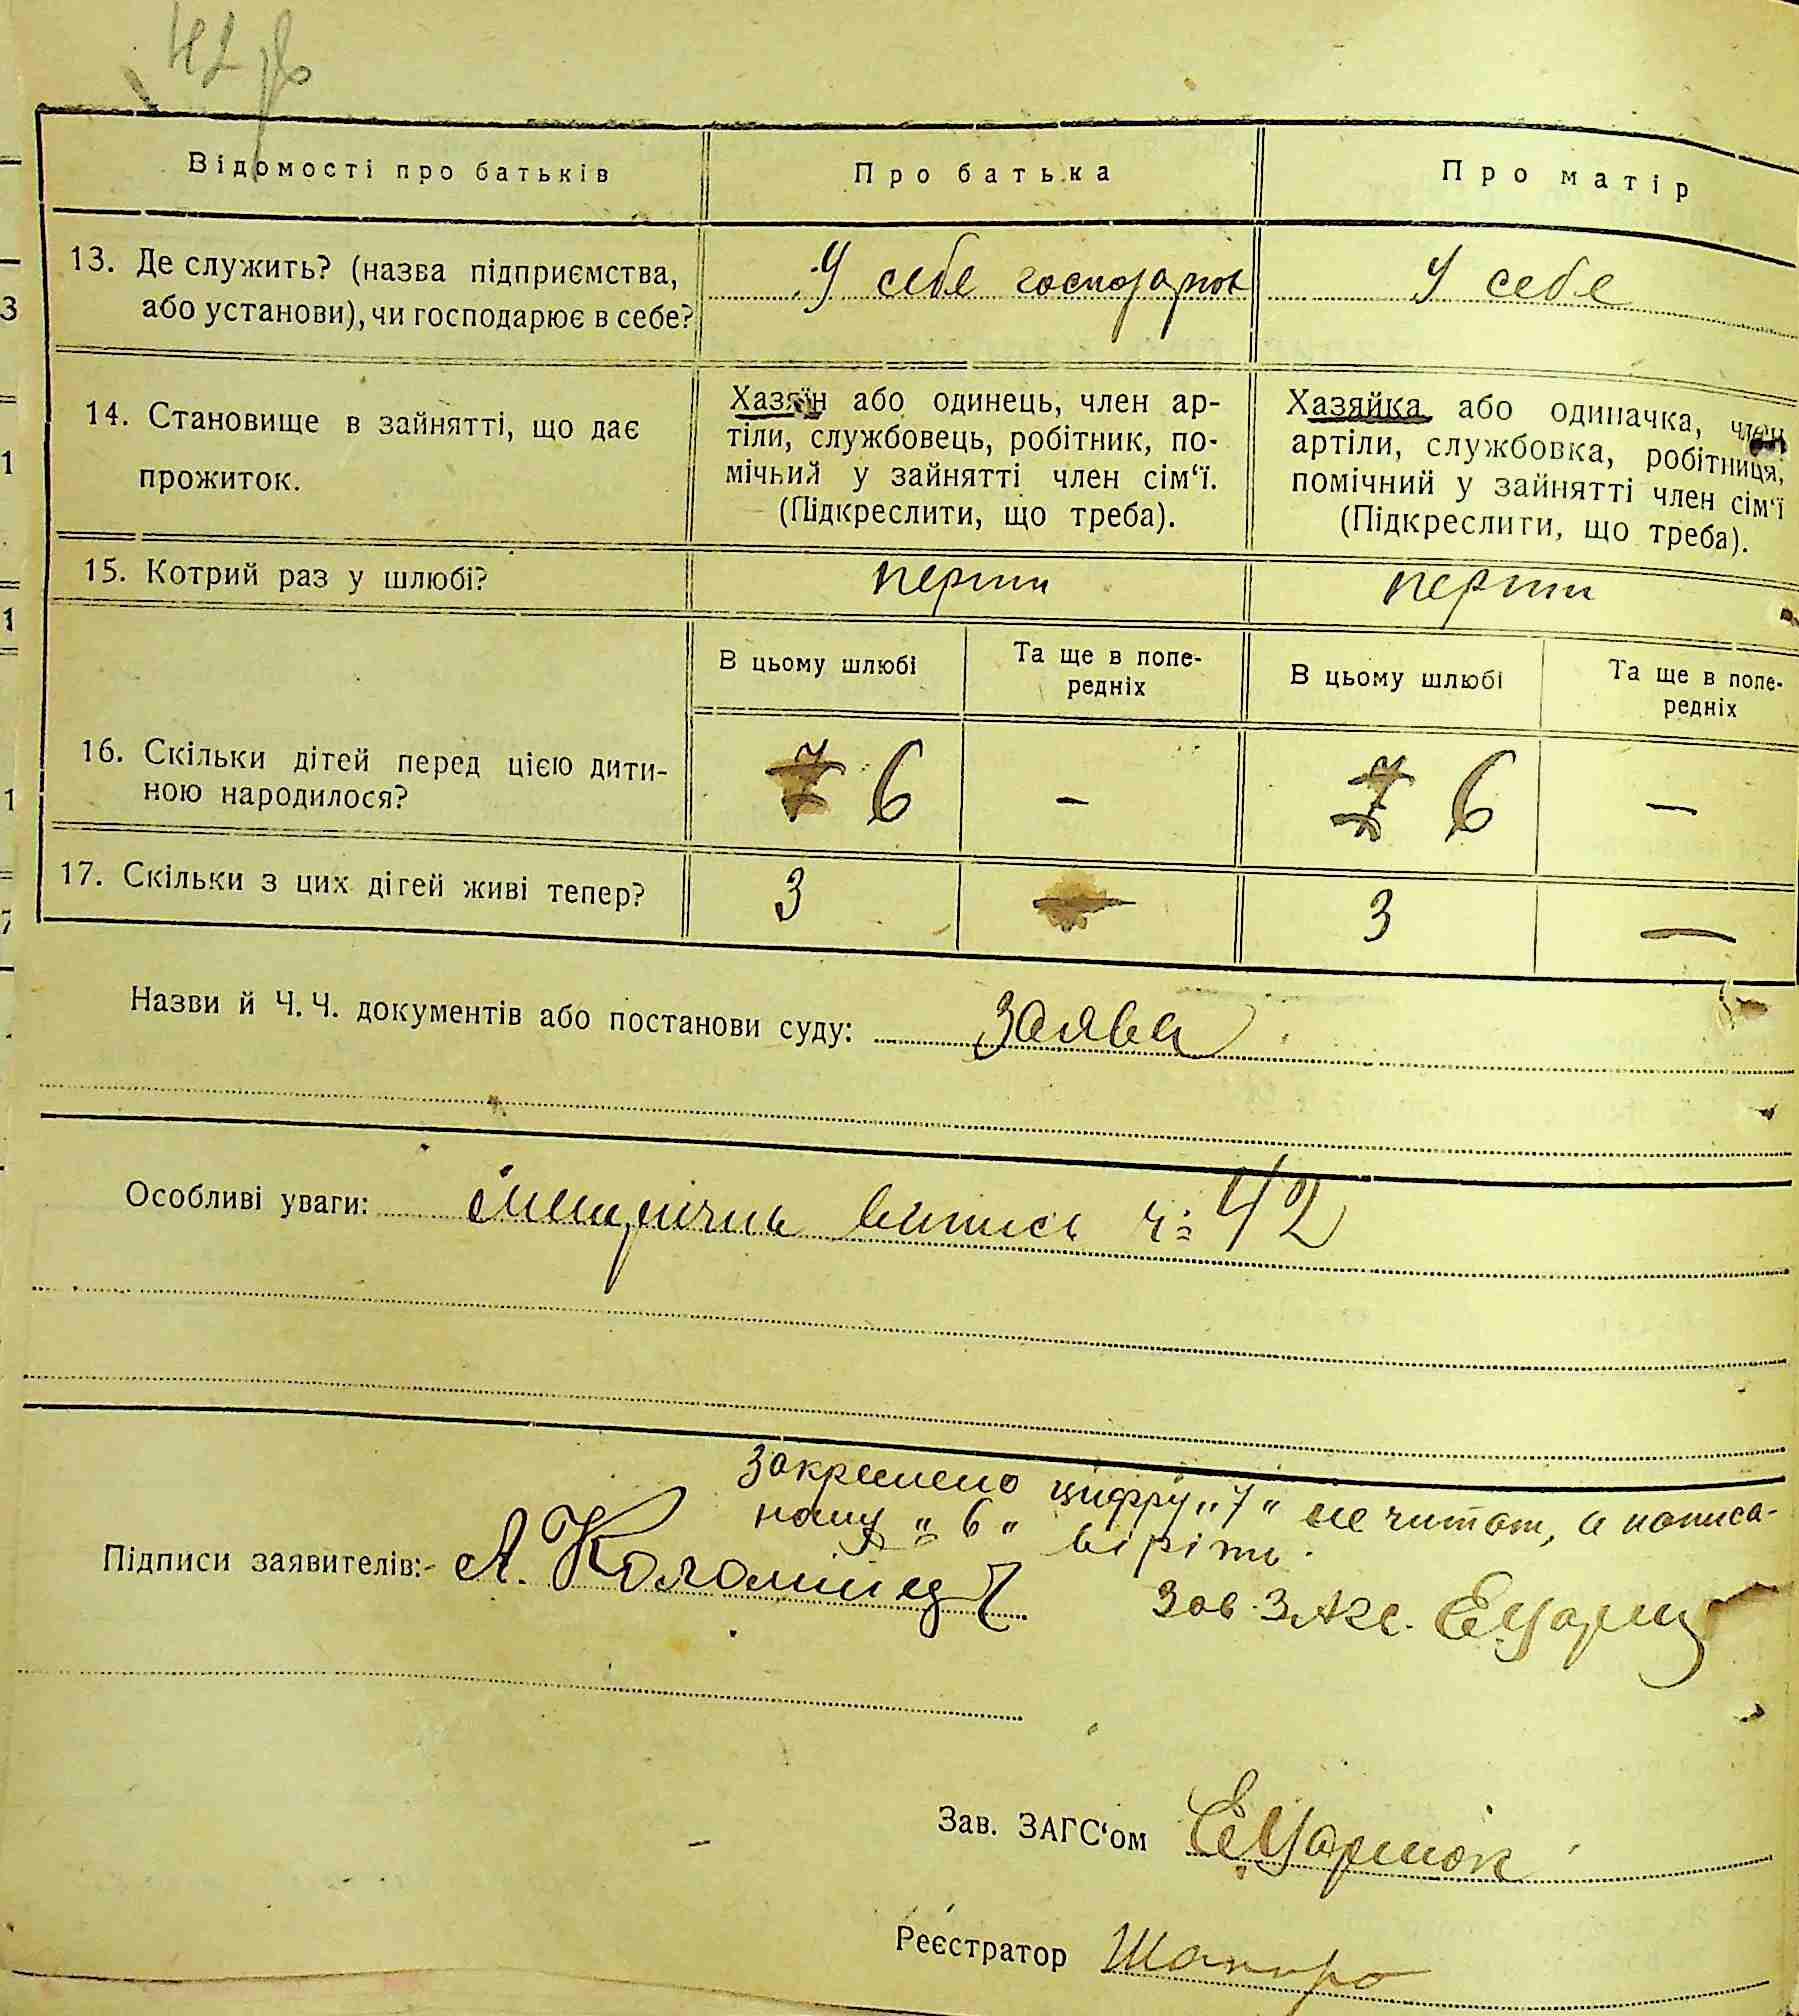 42
Відомості про батьків
Про батька
Про матір
13. Де служить? (назва підприємства,
або установи), чи господарює в себе?
У себе
У себе
14. Становище в зайнятті, що дає
прожиток.
Хазяїн або одинець, член ар-
тіли, службовець, робітник, по-
мічний у зайнятті член сім‘ї.
(Підкреслити, що треба).
Хазяйка або одиначка, член
артіли, службовка, робітниця,
помічний у зайнятті член сім‘ї
(Підкреслити, що треба).
15. Котрий раз у шлюбі?
перши
перши
В цьому шлюбі
Та ще в попе-
редніх
В цьому шлюбі
Та ще в попе-
редніх
16. Скільки дітей перед цією дити-
ною народилося?
7 6
-
7 6
—
17. Скільки з цих дітей живі тепер?
3
—
3
—
Назви й Ч. Ч. документів або постанови суду: Заява
Особливі уваги: випись ч: 42
цифру „7“ не читат, а написа-
ному „6“ вірить.
Підписи заявителів:- А. Коломиєць
Зав. ЗАГС.
Зав. ЗАГС‘ом
Реєстратор Шапиро